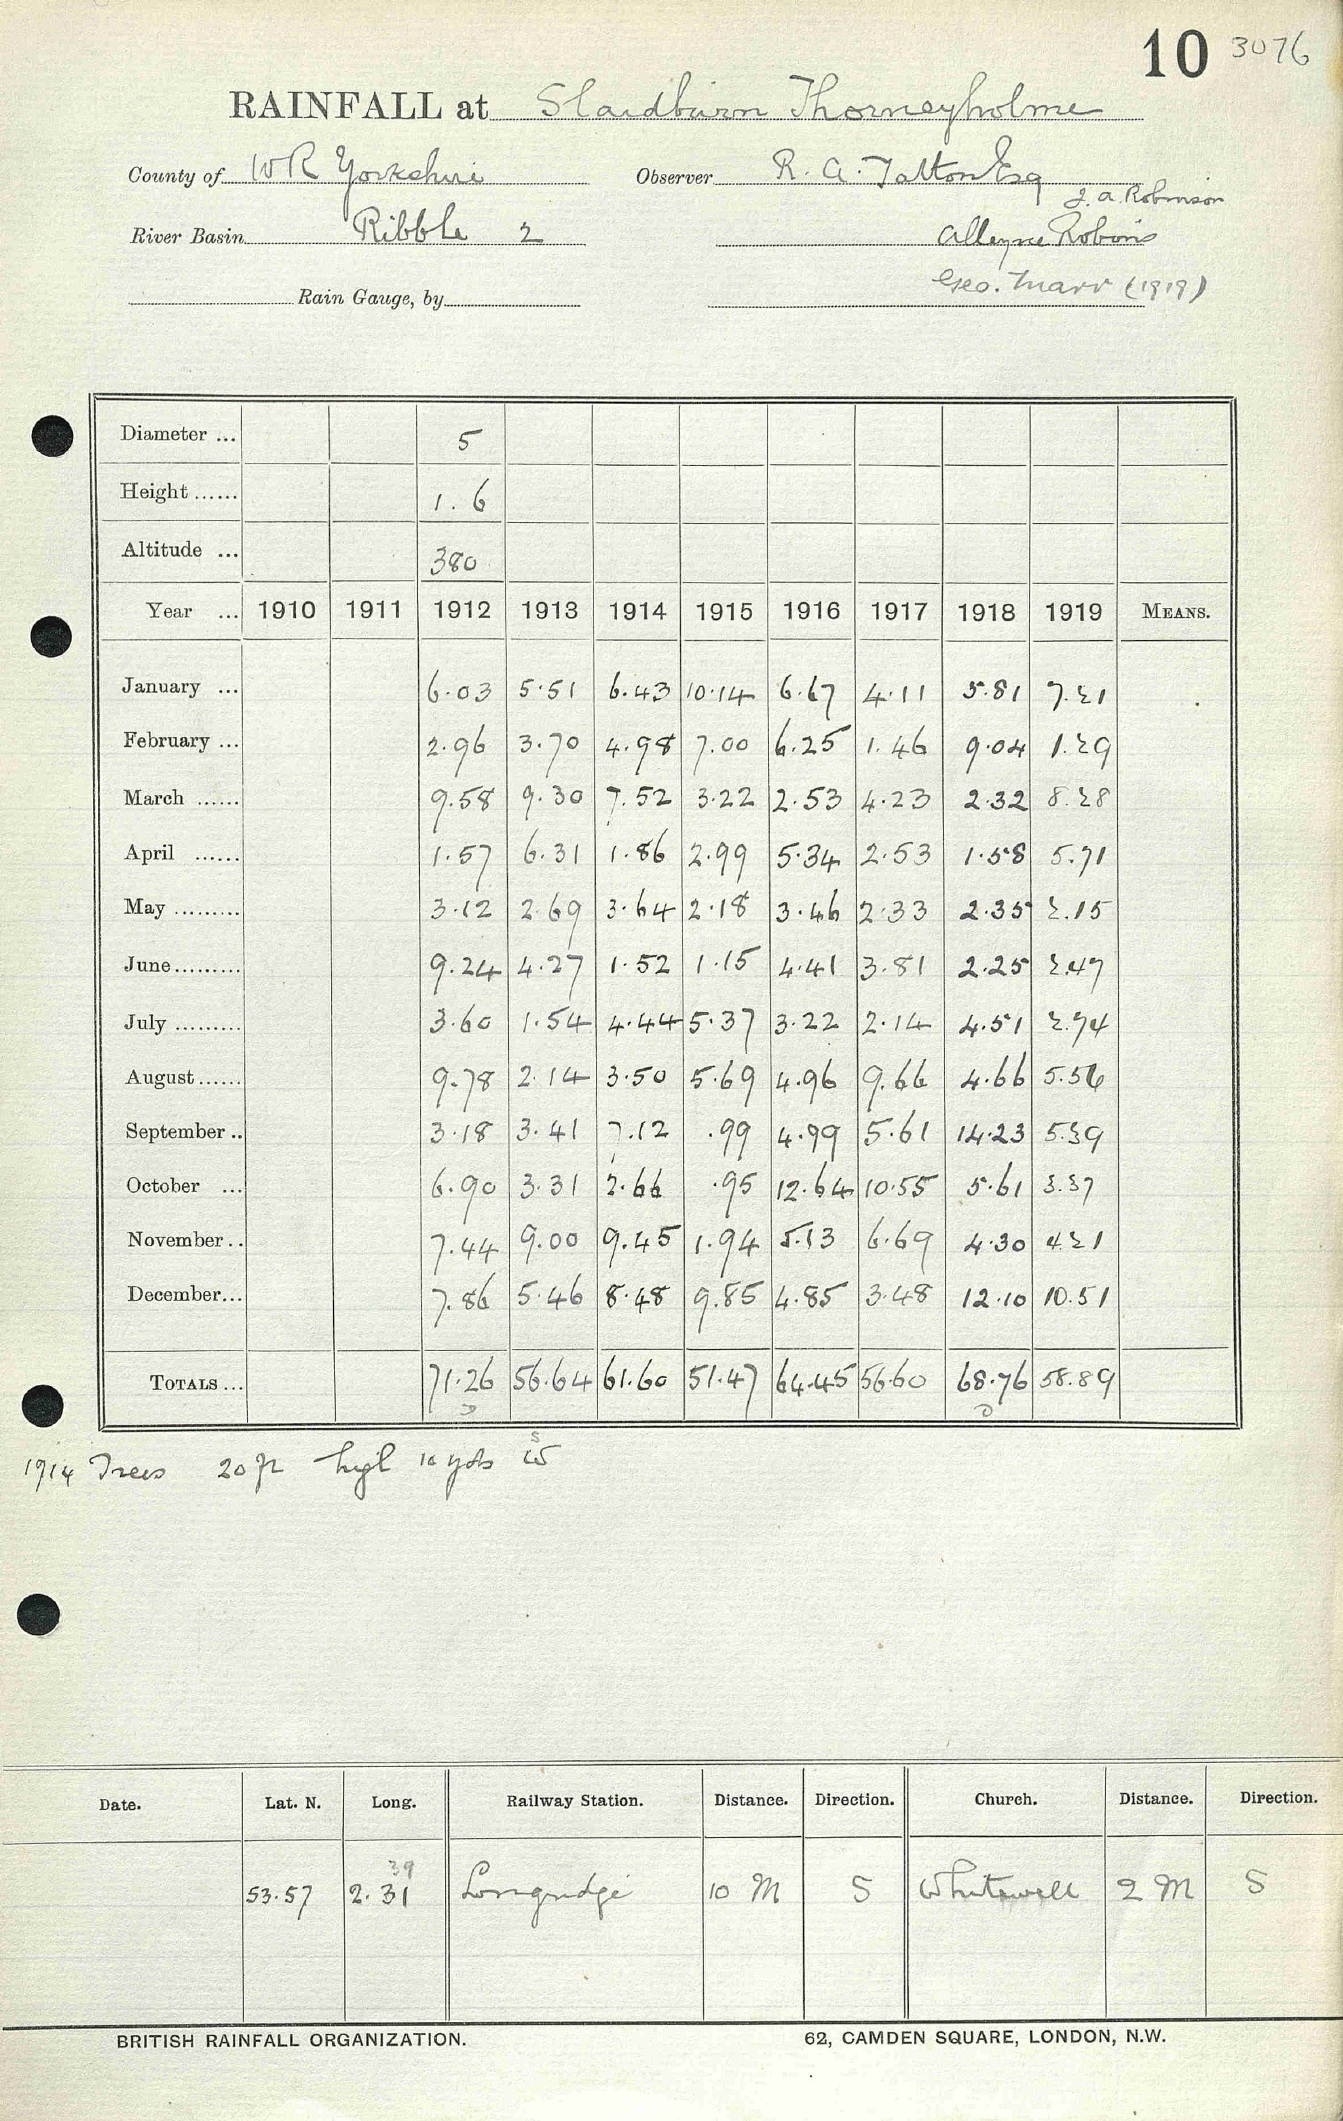 10 3076
RAINFALL at Slaidburn Thorneyholme
County of WR Yorkshire Observer R. A. Tatton Esq
J. A. Robinson
River Basin Ribble 2 Alleyne Robins
Rain Gauge, by Geo. Marr (1919)
Diameter ... 5
Height ...... 1.6
Altitude ... 380
Year ... 1910 1911 1912 1913 1914 1915 1916 1917 1918 1919 MEANS.
January ... 6.03 5.51 6.43 10.14 6.67 4.11 5.81 7.21
February ... 2.96 3.70 4.98 7.00 6.25 1.46 9.04 1.29
March ...... 9.58 9.30 7.52 3.22 2.53 4.23 2.32 8.28
April ...... 1.57 6.31 1.86 2.99 5.34 2.53 1.58 5.71
May ......... 3.12 2.69 3.64 2.18 3.46 2.33 2.35 2.15
June ......... 9.24 4.27 1.52 1.15 4.41 3.81 2.25 2.47
July ......... 3.60 1.54 4.44 5.37 3.22 2.14 4.51 2.74
August ...... 9.78 2.14 3.50 5.69 4.96 9.66 4.66 5.56
September .. 3.18 3.41 7.12 .99 4.99 5.61 14.23 5.39
October ... 6.90 3.31 2.66 .95 12.64 10.55 5.61 3.37
November .. 7.44 9.00 9.45 1.94 5.13 6.69 4.30 4.21
December... 7.86 5.46 8.48 9.85 4.85 3.48 12.10 10.51
TOTALS ... 71.26 56.64 61.60 51.47 64.45 56.60 68.76 58.89
1914 Trees 20 ft high 10 yds
Date. Lat. N. Long. Railway Station. Distance. Direction. Church. Distance. Direction.
39
53.57 2.31 Longridge 10 M S Whitewell 2 M S
BRITISH RAINFALL ORGANIZATION. 62, CAMDEN SQUARE, LONDON, N.W.